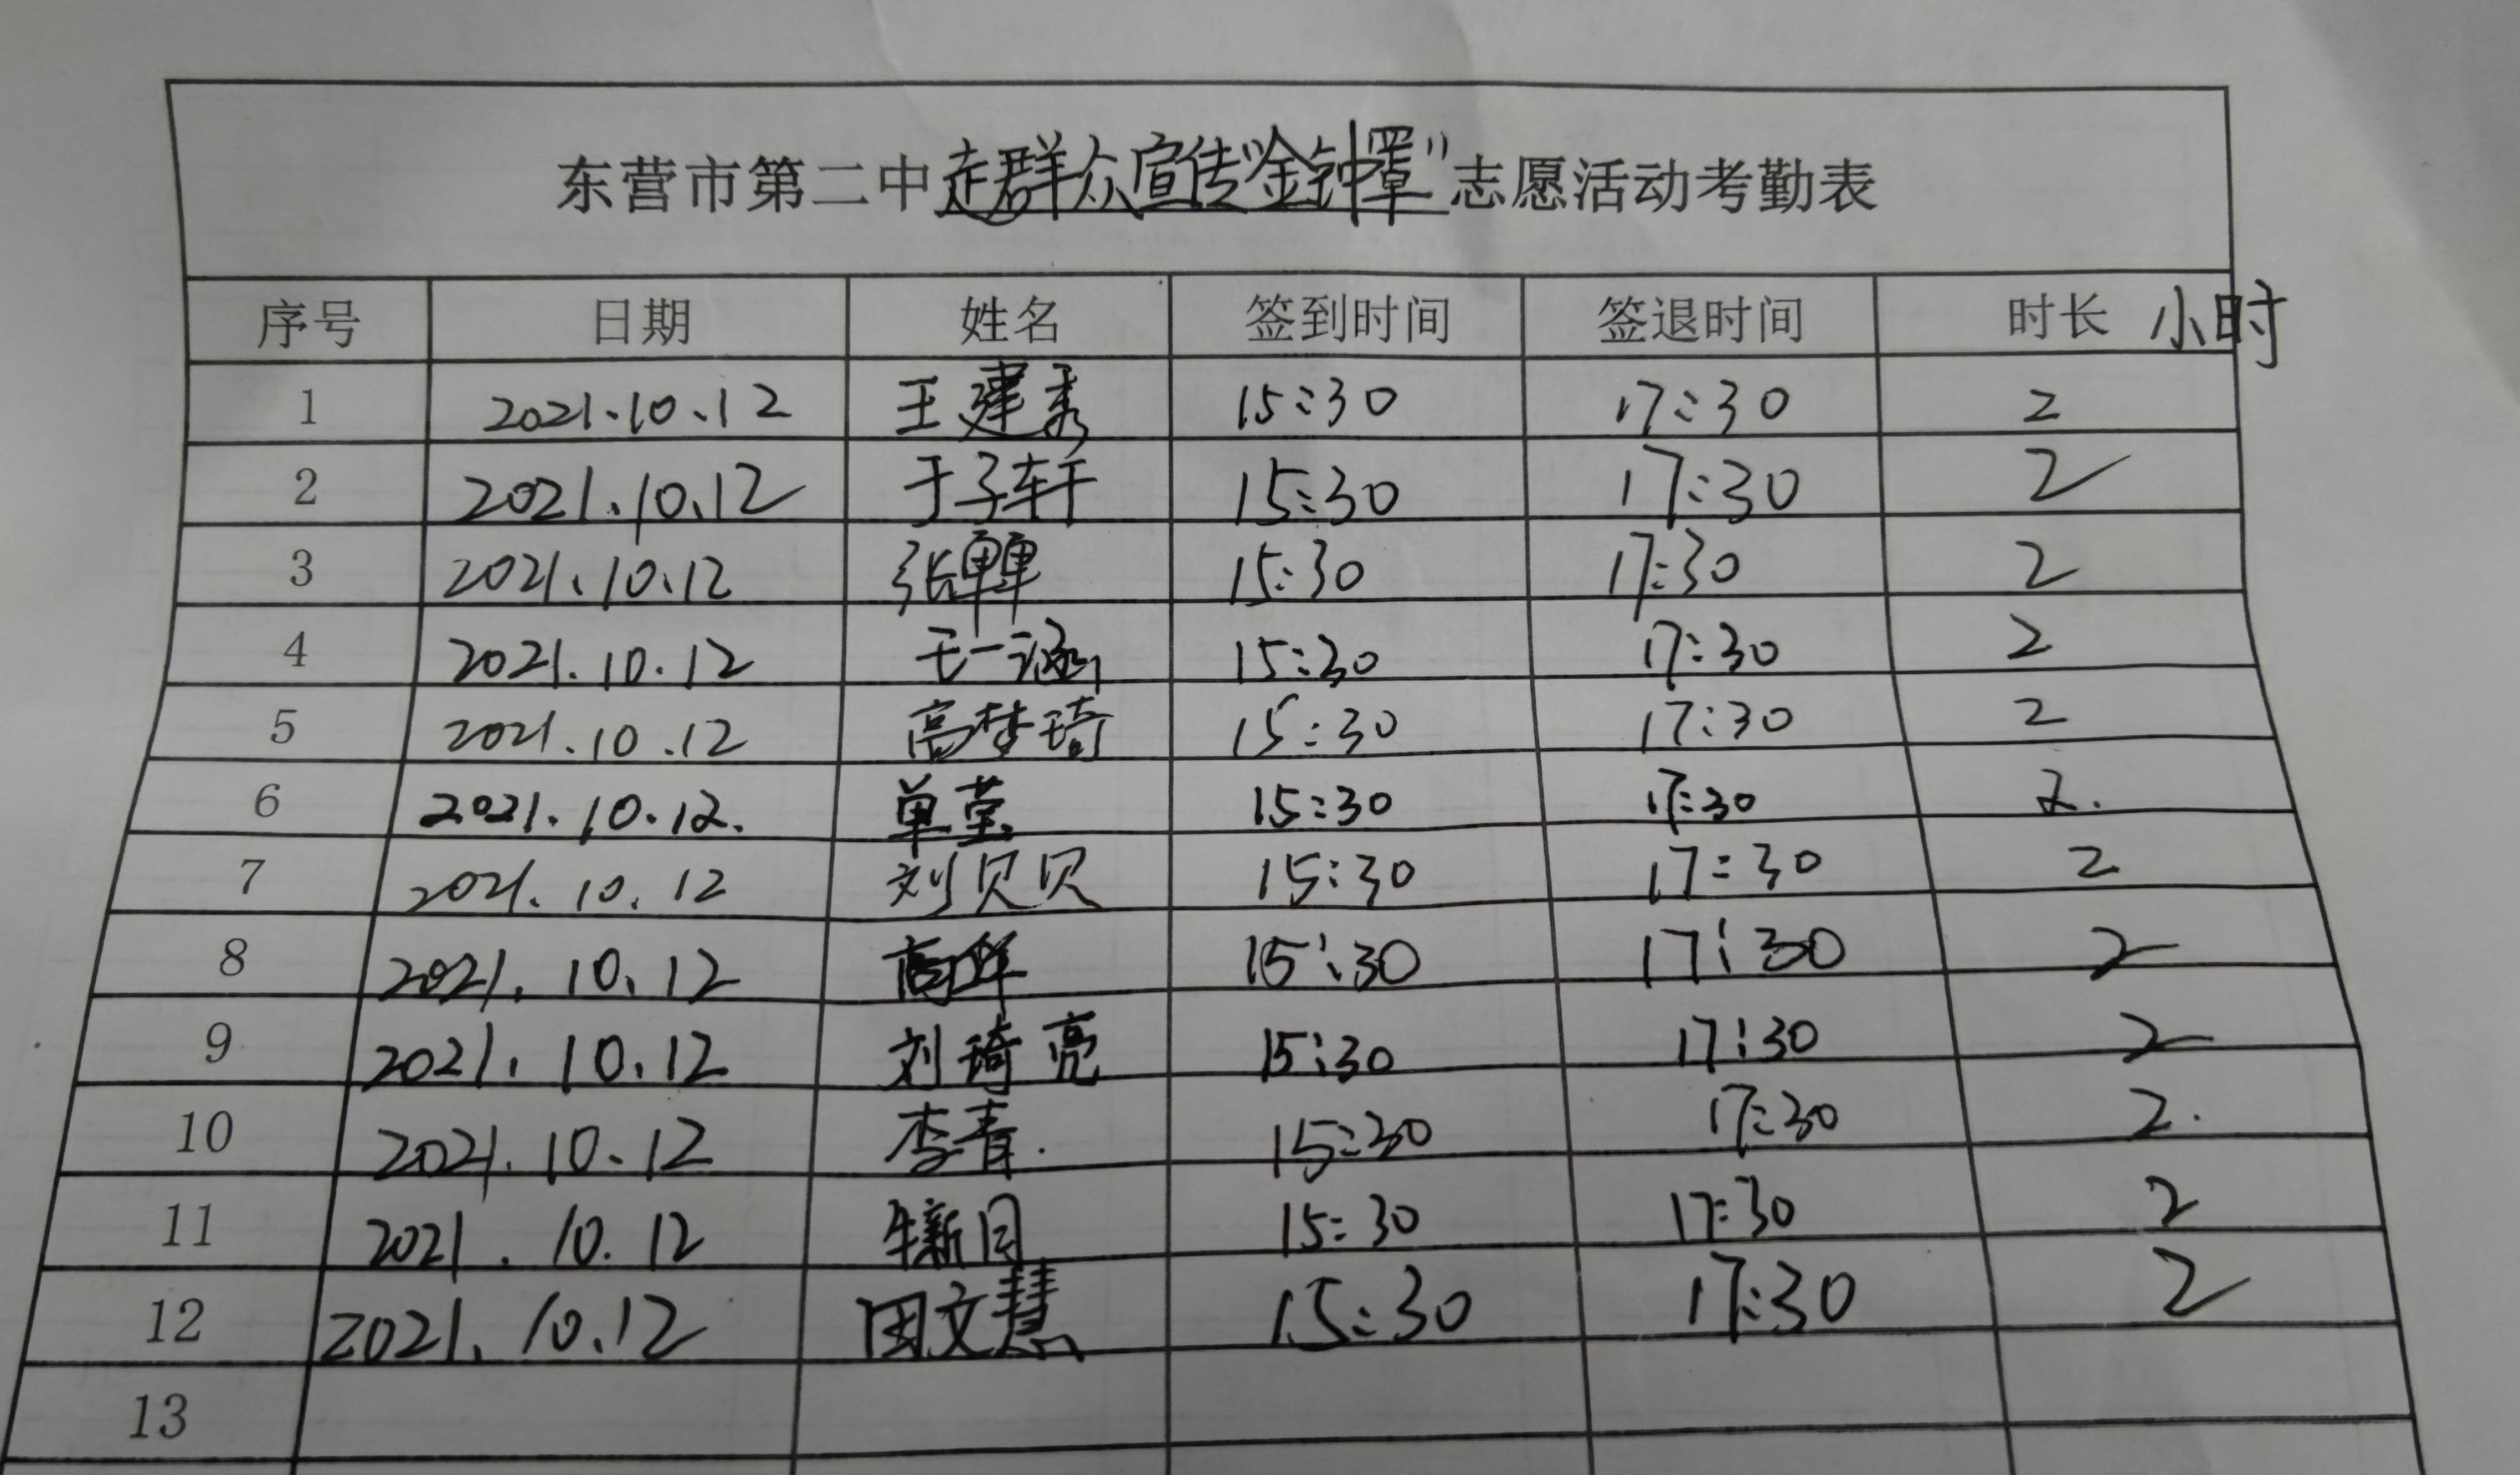 东营市第二中走群众宣传“金钟罩”志愿活动考勤表
序号 日期 姓名 签到时间 签退时间 时长 小时
1 2021.10.12 王建秀 15:30 17:30 2
2 2021.10.12 于子轩 15:30 17:30 2
3 2021.10.12 张 15:30 17:30 2
4 2021.10.12 王一涵 15:30 17:30 2
5 2021.10.12 高梦琦 15:30 17:30 2
6 2021.10.12. 单莹 15:30 17:30 2.
7 2021.10.12 刘贝贝 15:30 17:30 2
8 2021.10.12 高 15:30 17:30 2
9 2021.10.12 刘琦亮 15:30 17:30 2
10 2021.10.12 李青. 15:30 17:30 2.
11 2021.10.12 牛新 15:30 17:30 2
12 2021.10.12 田文慧 15:30 17:30 2
13